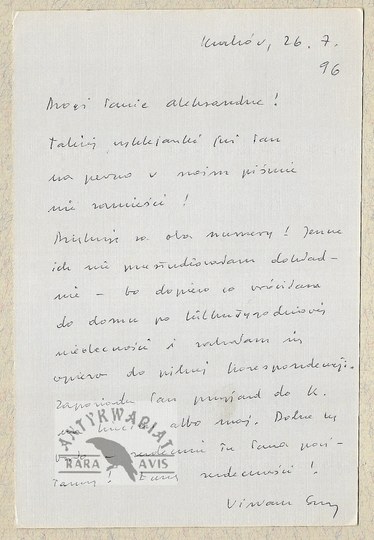 Kraków, 26. 7.
96
Drogi Panie Aleksandrze!
Takiej wyklejanki już Pan
na pewno w swoim piśmie
nie zamieści!
Dziękuję za oba numery! Jeszcze
ich nie przestudiowałam dokład-
nie – bo dopiero co wróciłam
do domu po kilkutygodniowej
nieobecności i zabrałam się
dopiero do pilnej korespondencji.
Zapowiada Pan przyjazd do K.
albo maj.
Pana powi-
tamy! serdeczności!
ANTYKWARIAT
RARA AVIS